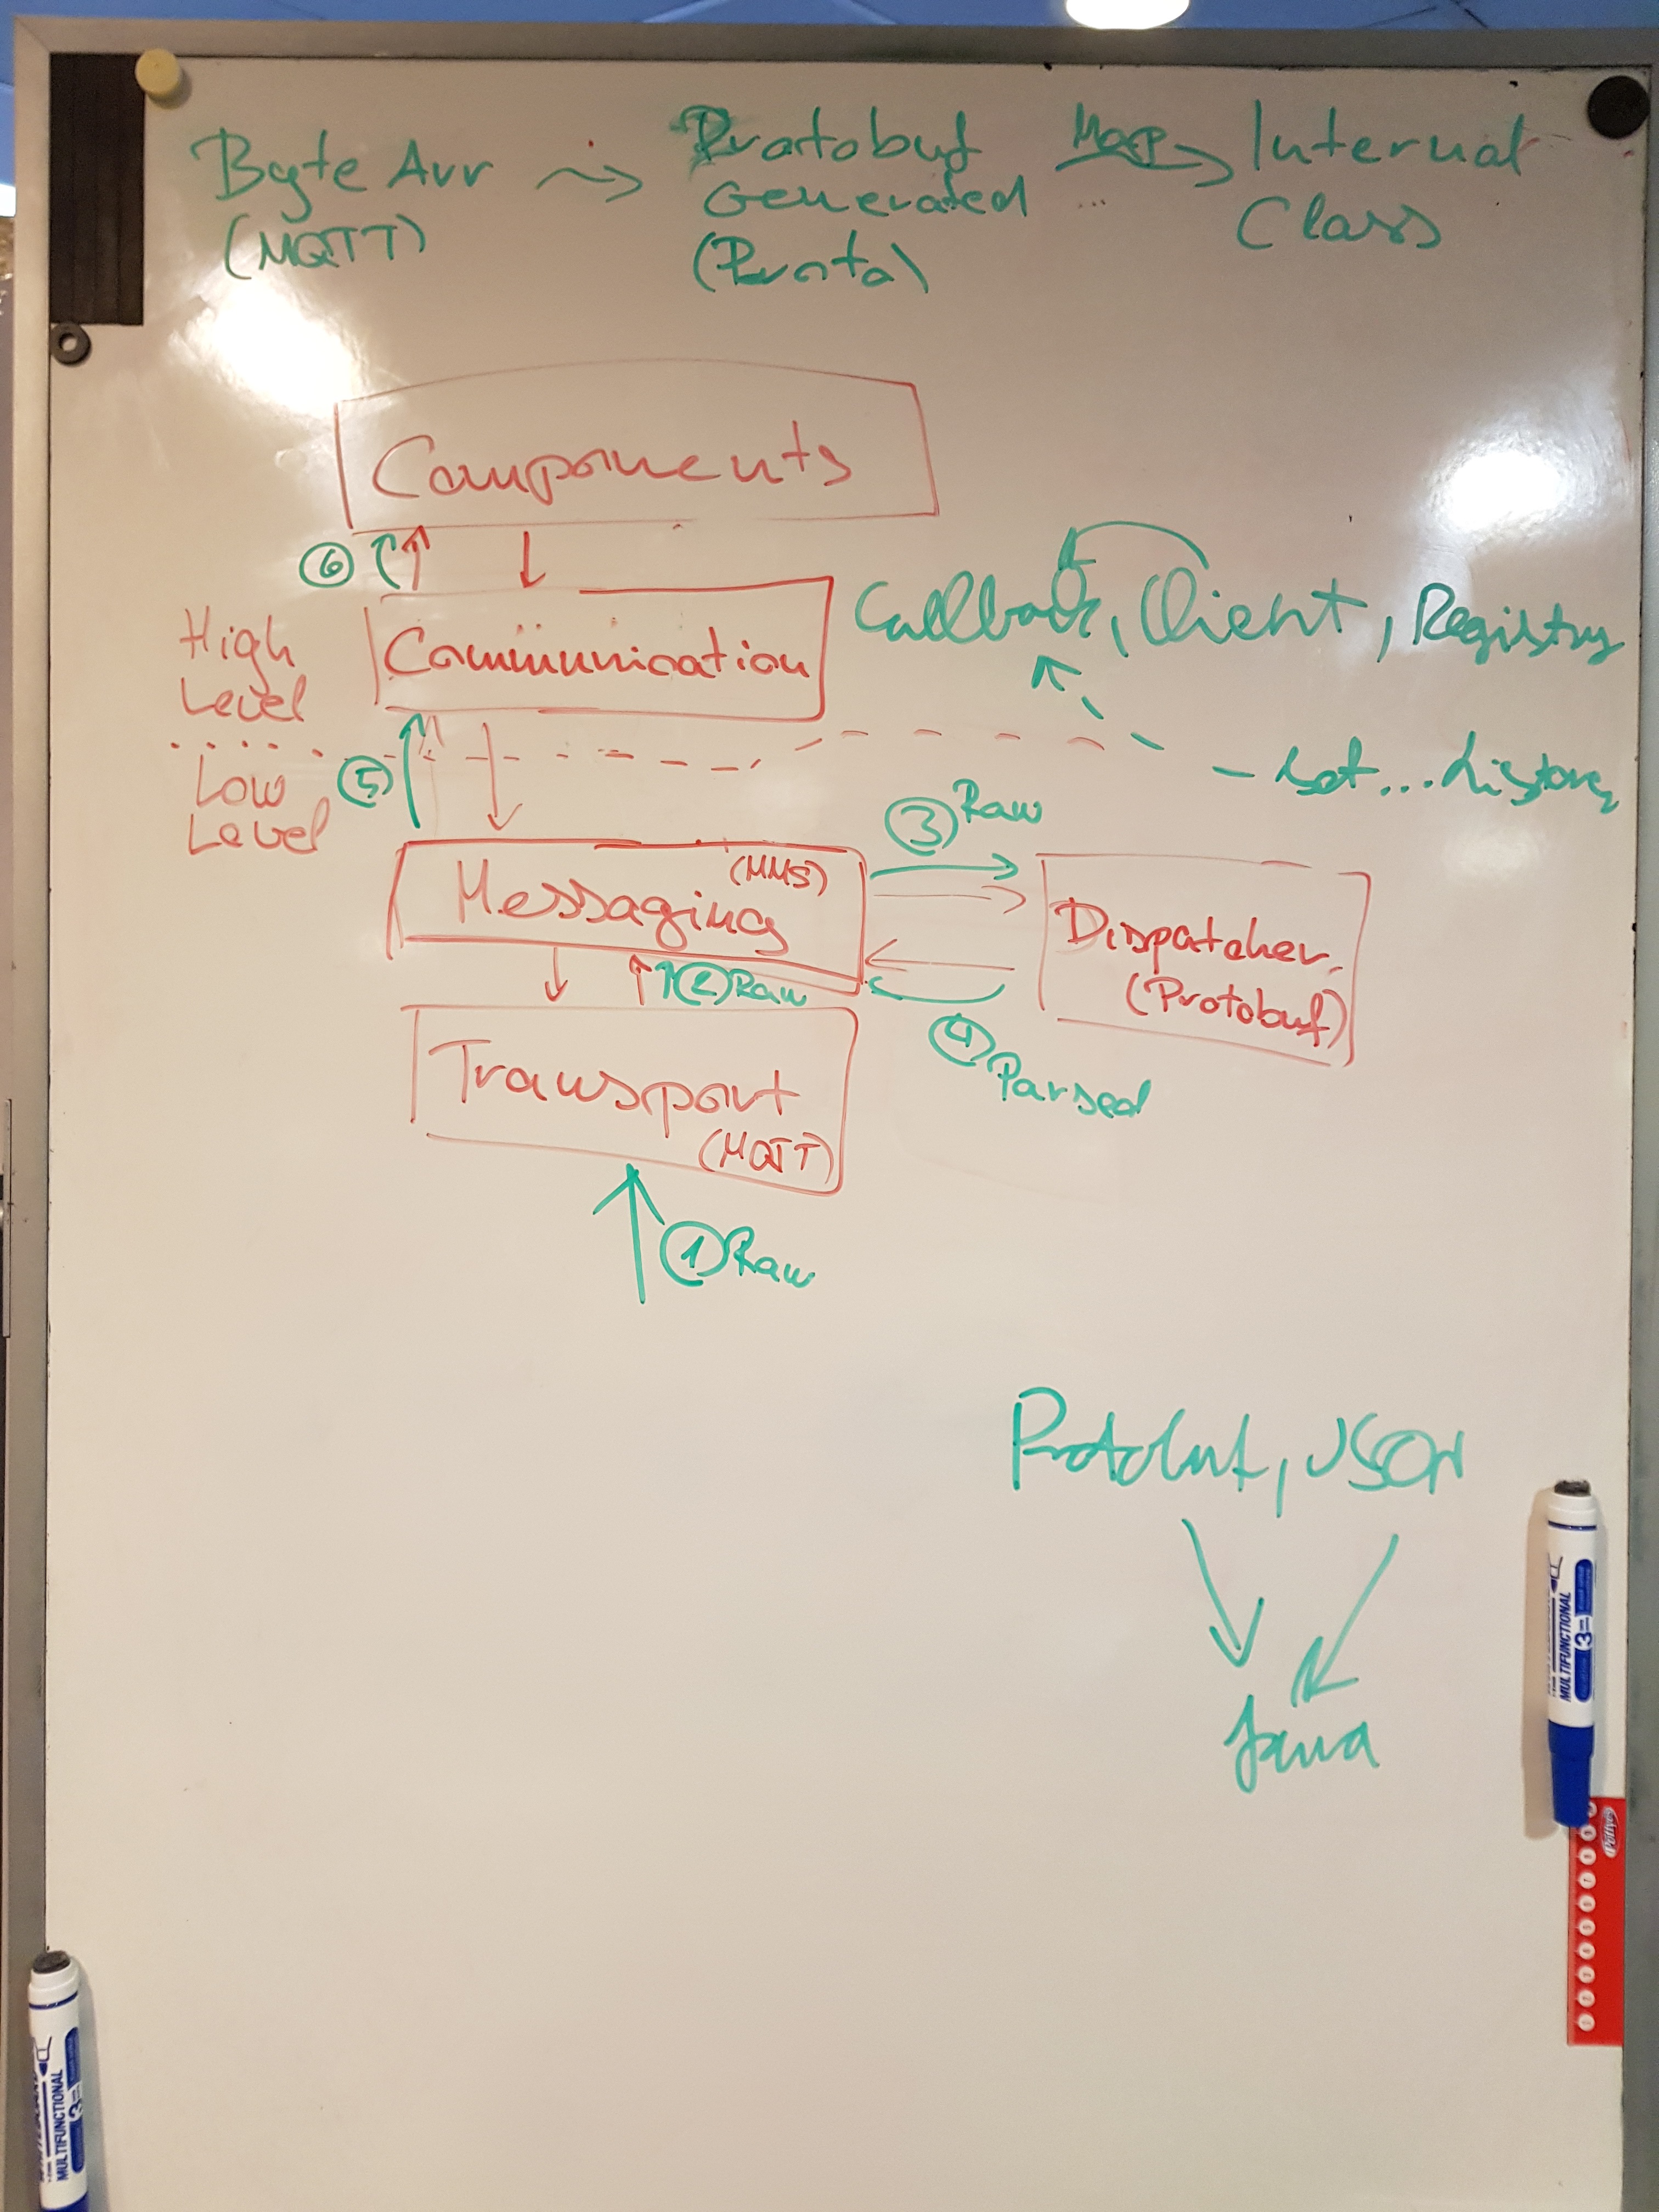 Byte Arr
(MQTT)
Protobuf
Generated
(Proto)
Map
...
Internal
Class
Components
6
High
Level
Communication
Callback, Client, Registry
Low
Level
5
- set...Listener
3 Raw
Messaging
(MMS)
Dispatcher
(Protobuf)
2 Raw
4 Parsed
Transport
(MQTT)
1 Raw
Protobuf, JSON
Java
MULTIFUNCTIONAL
3
MULTIFUNCTIONAL
3